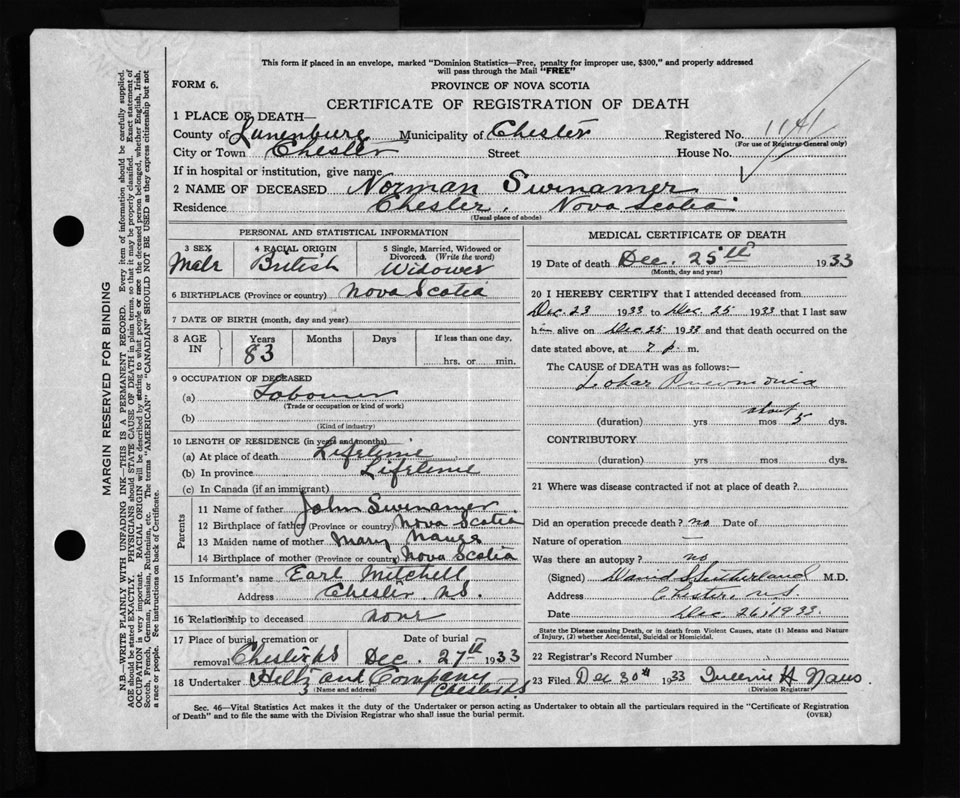 This form if placed in an envelope, marked "Dominion Statistics—Free, penalty for improper use, $300," and properly addressed
will pass through the Mail "FREE"
FORM 6.
PROVINCE OF NOVA SCOTIA
CERTIFICATE OF REGISTRATION OF DEATH
1 PLACE OF DEATH—
County of Lunenburg Municipality of Chester Registered No.
(For use of Registrar General only)
City or Town Chester Street House No.
If in hospital or institution, give name
2 NAME OF DECEASED Norman Swinamer
Residence Chester, Nova Scotia
(Usual place of abode)
PERSONAL AND STATISTICAL INFORMATION
3 SEX 4 RACIAL ORIGIN 5 Single, Married, Widowed or
Divorced. (Write the word)
Male British Widower
6 BIRTHPLACE (Province or country) Nova Scotia
7 DATE OF BIRTH (month, day and year)
8 AGE IN Years Months Days If less than one day,
83 hrs. or min.
9 OCCUPATION OF DECEASED
(a) Labourer
(Trade or occupation or kind of work)
(b)
(Kind of industry)
10 LENGTH OF RESIDENCE (in years and months)
(a) At place of death Lifetime
(b) In province Lifetime
(c) In Canada (if an immigrant)
Parents
11 Name of father John Swinamer
12 Birthplace of father (Province or country) Nova Scotia
13 Maiden name of mother Mary
14 Birthplace of mother (Province or country) Nova Scotia
15 Informant's name Earl Mitchell
Address Chester, N.S.
16 Relationship to deceased none
17 Place of burial, cremation or Date of burial
removal Chester N.S Dec. 27th 1933
18 Undertaker and Company
(Name and address) Chester N.S
MEDICAL CERTIFICATE OF DEATH
19 Date of death Dec. 25th 1933
(Month, day and year)
20 I HEREBY CERTIFY that I attended deceased from
Dec. 23 1933 to Dec. 25 1933 that I last saw
him alive on Dec 25 1933 and that death occurred on
date stated above, at 7 p. m.
The CAUSE of DEATH was as follows:—
Lobar Pneumonia
about
(duration) yrs mos 5 dys.
CONTRIBUTORY
(duration) yrs mos dys.
21 Where was disease contracted if not at place of death?
Did an operation precede death? no Date of
Nature of operation —
Was there an autopsy? no
(Signed) David Sutherland M.D.
Address Chester, N.S.
Date Dec. 26, 1933.
State the Disease causing Death, or in death from Violent Causes, state (1) Means and Nature
of Injury, (2) whether Accidental, Suicidal or Homicidal.
22 Registrar's Record Number
23 Filed Dec 30th 1933
(Division Registrar)
Sec. 46—Vital Statistics Act makes it the duty of the Undertaker or person acting as Undertaker to obtain all the particulars required in the "Certificate of Registration
of Death" and to file the same with the Division Registrar who shall issue the burial permit.
(OVER)
MARGIN RESERVED FOR BINDING
N.B.—WRITE PLAINLY WITH UNFADING INK—THIS IS A PERMANENT RECORD. Every item of information should be carefully supplied.
AGE should be stated EXACTLY. PHYSICIANS should STATE CAUSE OF DEATH in plain terms, so that it may be properly classified. Exact statement of
OCCUPATION is very important. RACIAL ORIGIN will be described by stating to what people or race the deceased person belonged, whether English, Irish,
Scotch, French, German, Russian, Ruthenian, etc. The terms "AMERICAN" or "CANADIAN" SHOULD NOT BE USED as they express citizenship but not
a race or people. See instructions on back of Certificate.